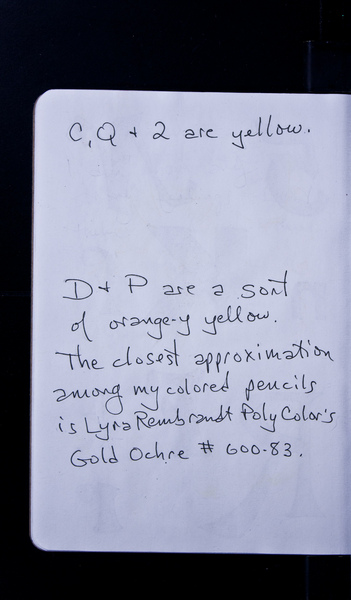 C, Q + 2 are yellow.
D + P are a sort
of orange-y yellow.
The closest approximation
among my colored pencils
is Lyra Rembrandt PolyColor's
Gold Ochre # 600-83.